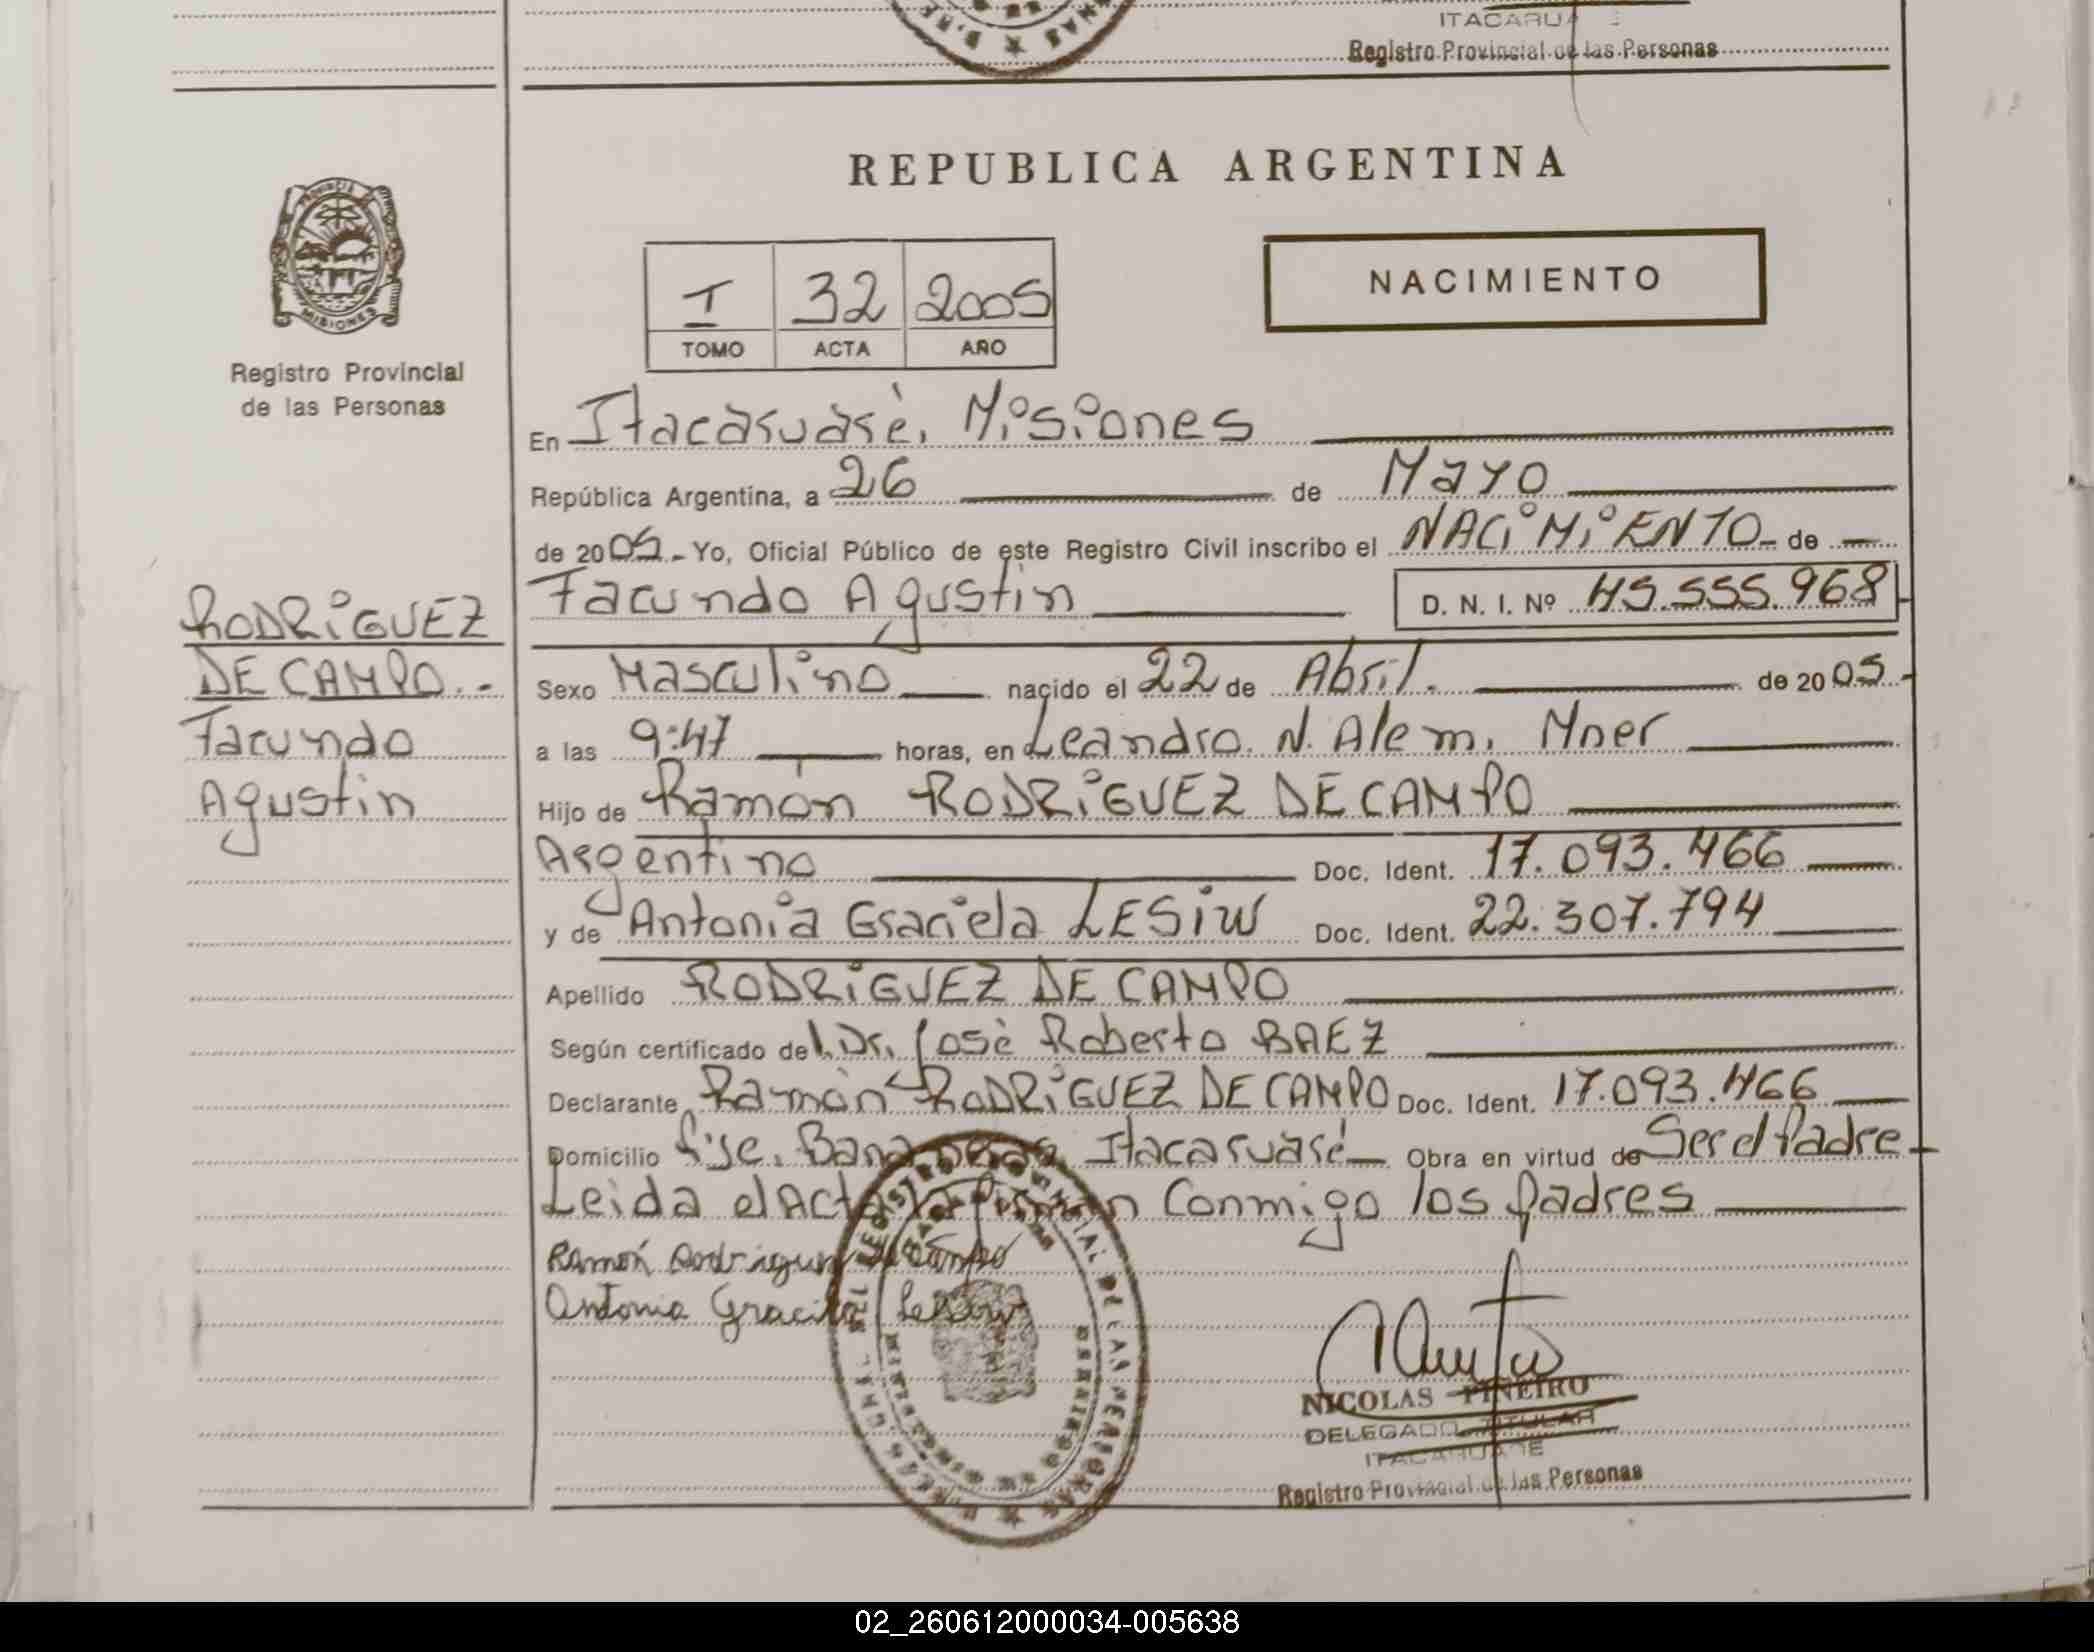 ITACARUA
Registro Provincial de las Personas
REPUBLICA ARGENTINA
PROVINCIA
MISIONES
Registro Provincial
de las Personas
I 32 2005
TOMO ACTA AÑO
NACIMIENTO
En Itacaruaré, Misiones
República Argentina, a 26 de Mayo
de 2005.- Yo, Oficial Público de este Registro Civil inscribo el NACiMiENTO - de —
Facundo Agustin D. N. I. Nº 45.555.968
RODRiGUEZ
DE CAMPO.-
Facundo
Agustin
Sexo Masculino nacido el 22 de Abril. de 2005
a las 9:47 horas, en Leandro. N. Alem, Mner
Hijo de Ramón RODRiGUEZ DE CAMPO
Argentino Doc. Ident. 17.093.466
y de Antonia Graciela LESiW Doc. Ident. 22.307.794
Apellido RODRiGUEZ DE CAMPO
Según certificado del. Dr. José Roberto BAEZ
Declarante Ramón RODRiGUEZ DE CAMPO Doc. Ident. 17.093.466
Domicilio Itacaruaré Obra en virtud de Ser el Padre
Leida el Acta la firman conmigo los padres
Ramón Rodriguez de Campo
Antonia Graciela Lesiw
NICOLAS PIÑEIRO
DELEGADO TITULAR
ITACARUARE
Registro Provincial de las Personas
02_260612000034-005638